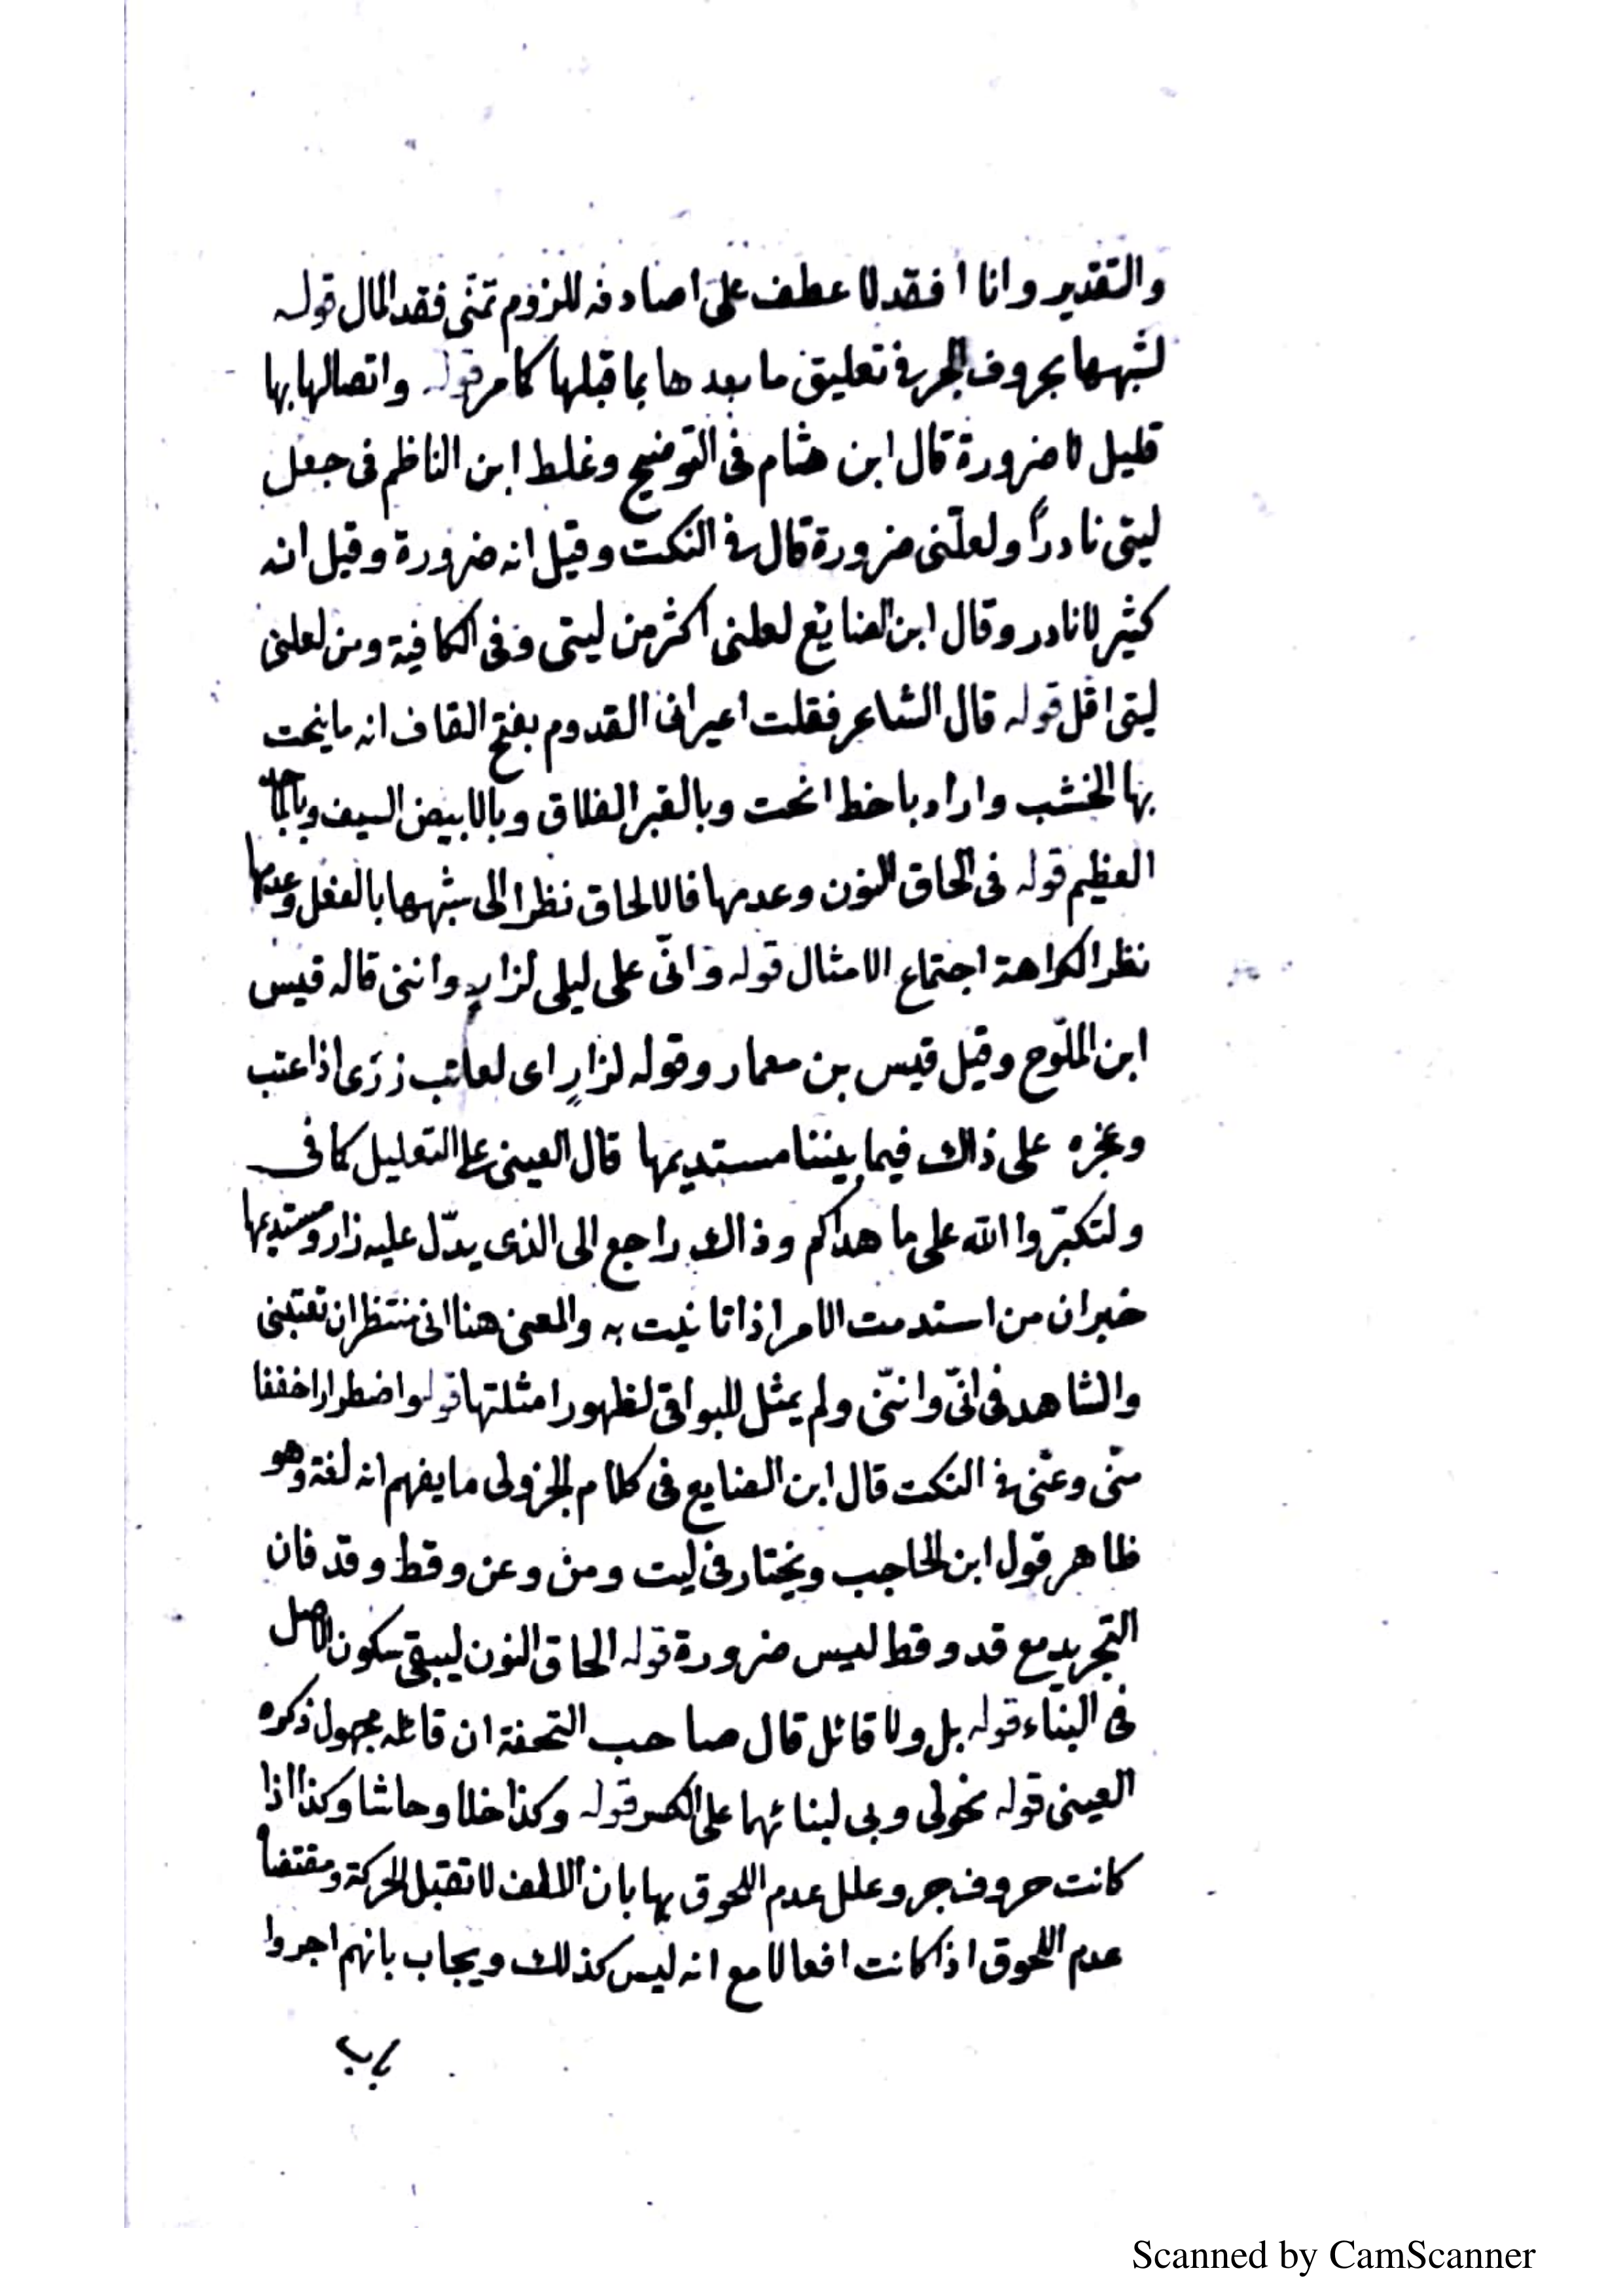 والتقدير وانا افقد لا عطف على اصادفه للزوم تمنى فقد المال قوله
لشبهها بحروف الجر في تعليق ما بعدها بما قبلها كما مر قوله واتصالها بها
قليل لا ضرورة قال ابن هشام فى التوضيح وغلط ابن الناظم فى جعل
ليتى نادرًا ولعلّنى ضرورة قال في النكت وقيل انه ضرورة وقيل انه
كثير لا نادر وقال ابن الضايع لعلنى اكثر من ليتى وفى الكافية ومن لعلنى
ليتى اقل قوله قال الشاعر فقلت اعيرانى القدوم بفتح القاف انه ما ينحت
بها الخشب واراد باخط انحت وبالقبر الغلاق وبالابيض السيف وبالماجد
العظيم قوله فى الحاق النون وعدمها فالالحاق نظرا الى شبهها بالفعل وعدمها
نظرا لكراهة اجتماع الامثال قوله وانّى على ليلى لزارٍ واننى قاله قيس
ابن الملّوح وقيل قيس بن معمار وقوله لزارٍ اى لعاتب زرَى اذا عتب
وعجزه على ذاك فيما بيننا مستديمها قال العينى على التعليل كما فى
ولتكبّروا الله على ما هداكم وذاك راجع الى الذى يدّل عليه زار ومستديمها
خبر ان من استدمت الامر اذا تانيت به والمعنى هنا انى منتظر ان تعتبنى
والشاهد فى انّى وانّنى ولم يمثل للبواقى لظهور امثلتها قوله واضطرارا خففا
منّى وعنّى في النكت قال ابن الضايع فى كلام الجزولى ما يفهم انه لغة وهو
ظاهر قول ابن الحاجب ويختار فى ليت ومن وعن وقط وقد فان
التجريد مع قد وقط ليس ضرورة قوله الحاق النون ليبقى سكون الاصل
فى البنّاء قوله بل ولا قائل قال صاحب التحفة ان قائله مجهول ذكره
العينى قوله نحو لى وبى لبنائهما على الكسر قوله وكذا خلا وحاشا وكذا اذا
كانت حروف جر وعلل عدم اللحوق بها بان الالف لا تقبل الحركة ومقتضاه
عدم اللحوق اذا كانت افعالا مع انه ليس كذلك ويجاب بانهم اجروا
باب